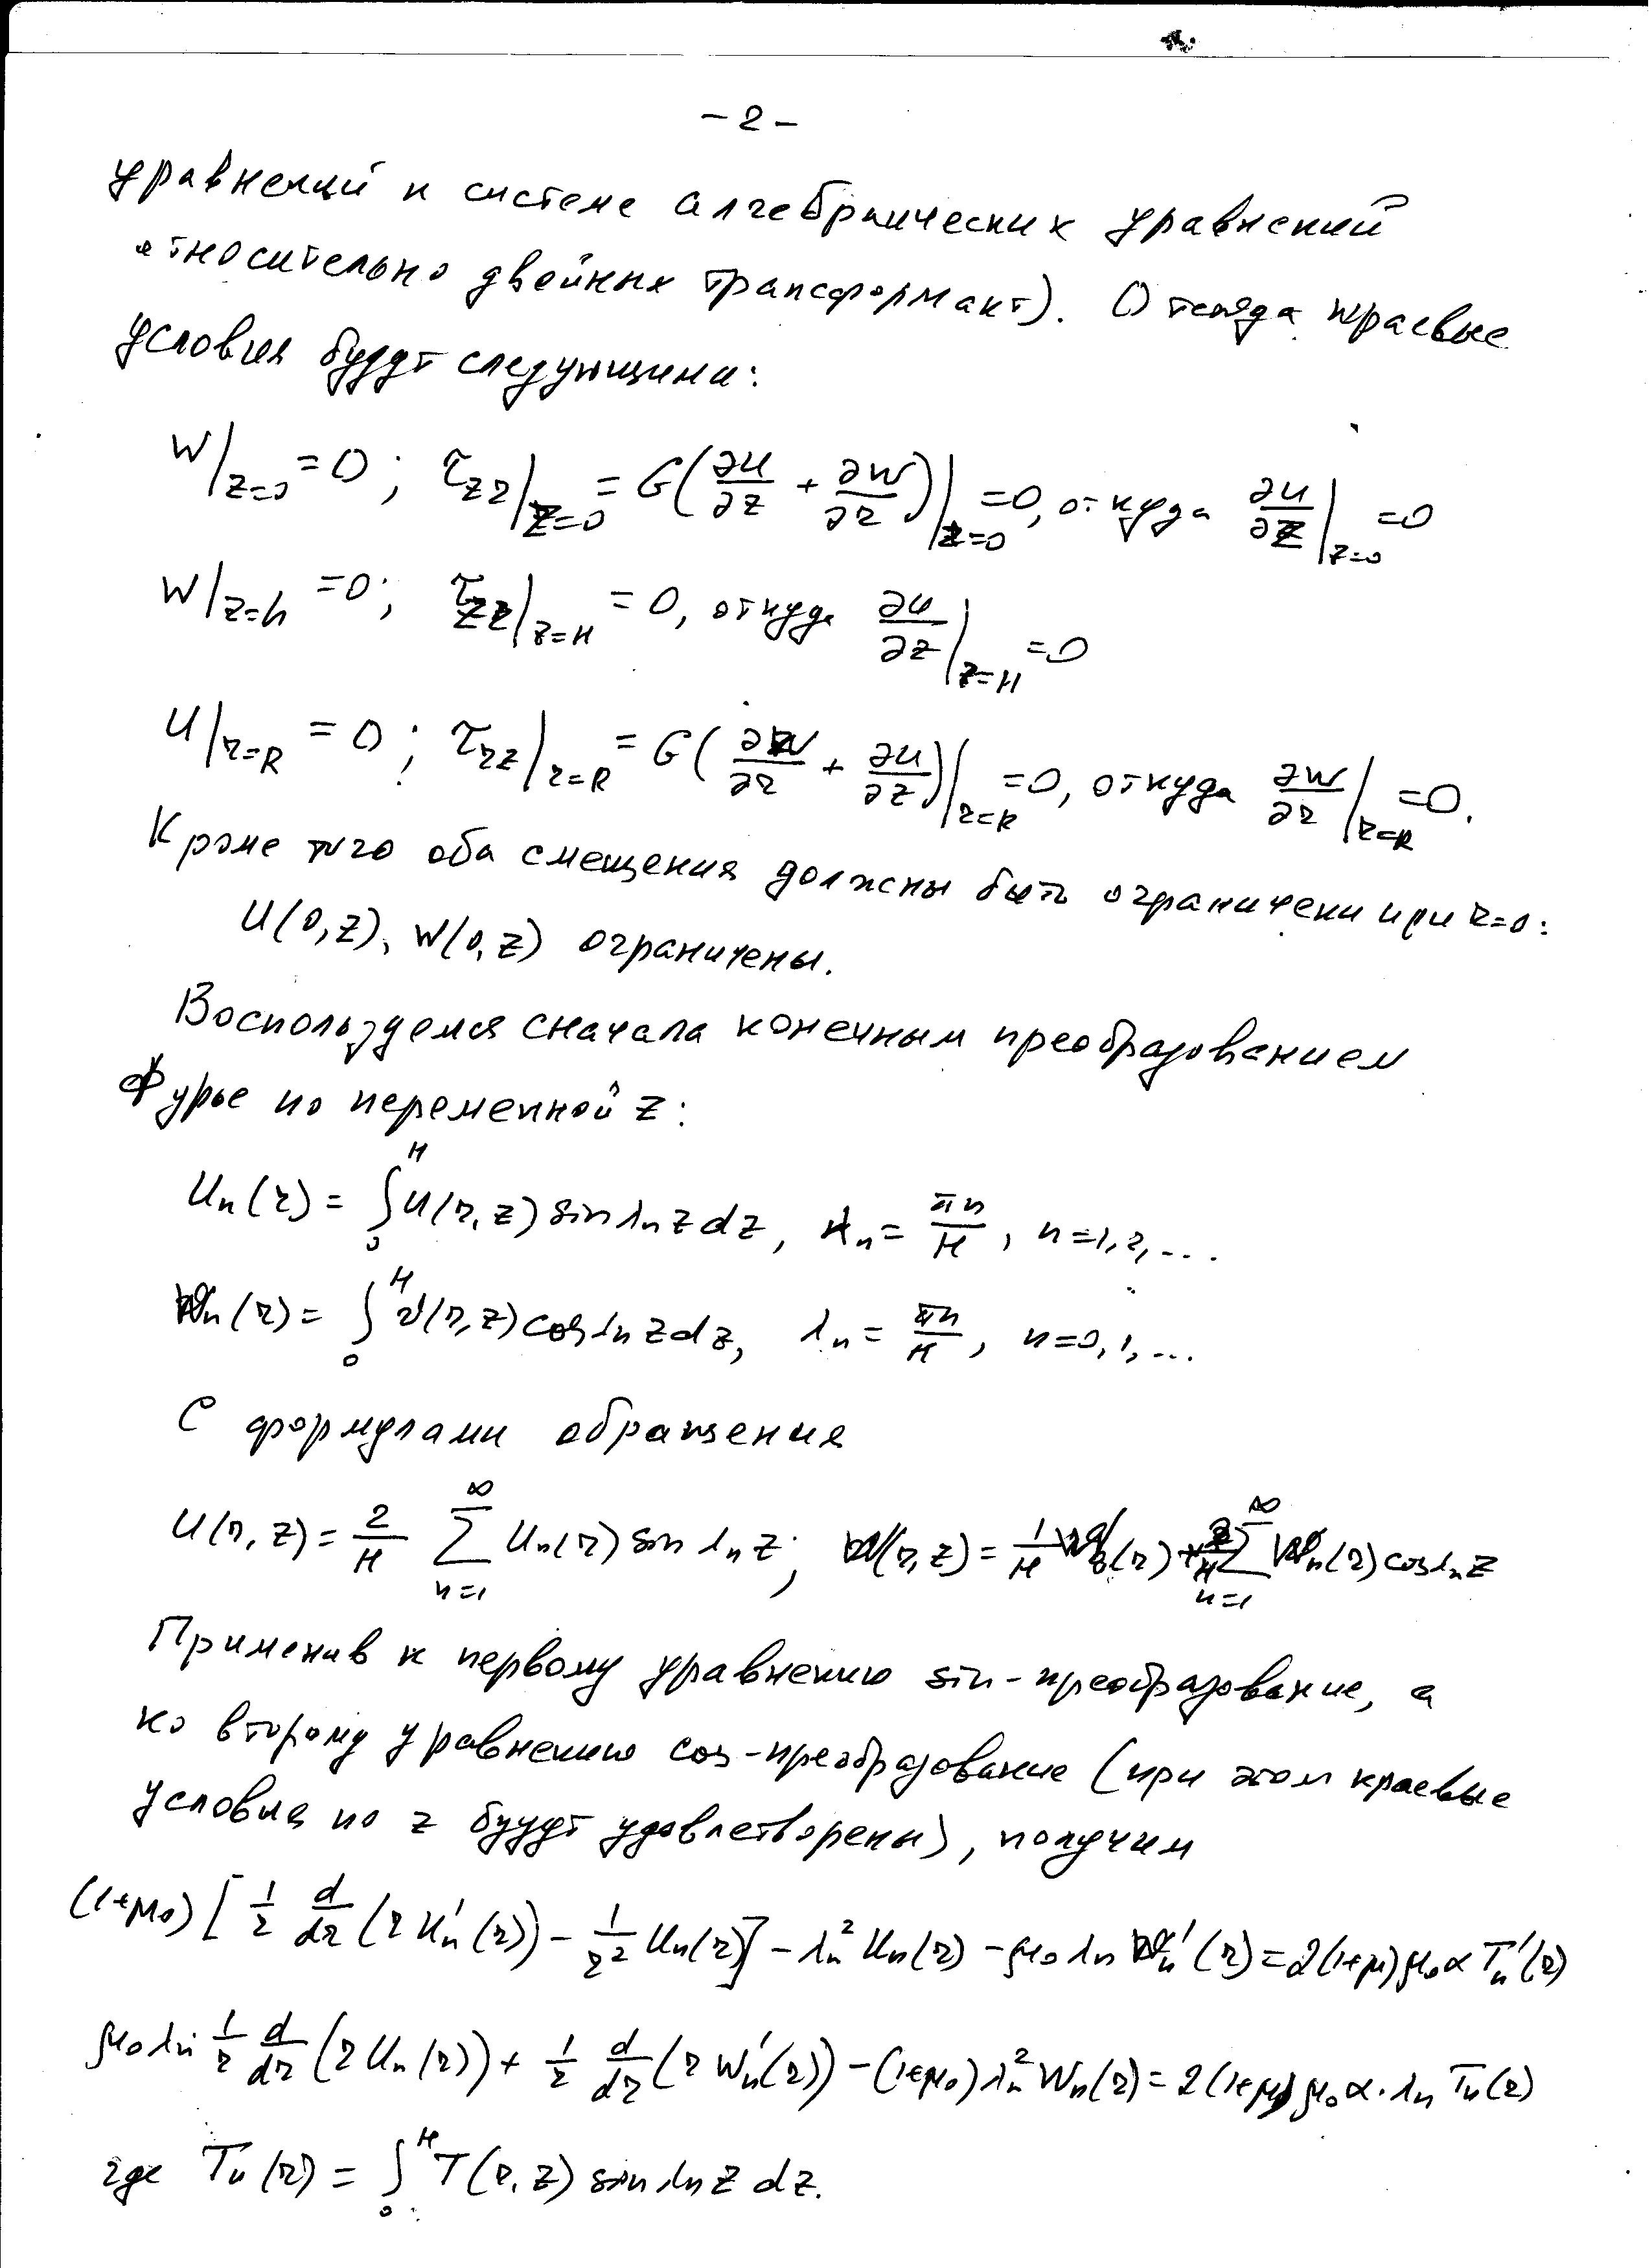 - 2 -
уравнений к системе алгебраических уравнений
относительно двойных трансформант). Отсюда краевые
условия будут следующими:
W|_{z=0} = 0; τ_{zr}|_{z=0} = G(∂u/∂z + ∂w/∂r)|_{z=0} = 0, откуда ∂u/∂z|_{z=0} = 0
W|_{z=h} = 0; τ_{zr}|_{z=H} = 0, откуда ∂u/∂z|_{z=H} = 0
U|_{r=R} = 0; τ_{rz}|_{r=R} = G(∂w/∂r + ∂u/∂z)|_{r=R} = 0, откуда ∂w/∂r|_{r=R} = 0.
Кроме того оба смещения должны быть ограничены при r=0:
U(0,z), W(0,z) ограничены.
Воспользуемся сначала конечным преобразованием
Фурье по переменной z:
U_n(r) = ∫_0^H U(r,z) sin λ_n z dz, λ_n = πn/H, n=1,2,...
W_n(r) = ∫_0^H v(r,z) cos λ_n z dz, λ_n = πn/H, n=0,1,...
С формулами обращения
U(r,z) = 2/H ∑_{n=1}^∞ U_n(r) sin λ_n z; W(r,z) = 1/H W_0(r) + 2/H ∑_{n=1}^∞ W_n(r) cos λ_n z
Применив к первому уравнению sin-преобразование, а
ко второму уравнению cos-преобразование (при этом краевые
условия по z будут удовлетворены), получим
(1+μ_0)[1/r d/dr (r U_n'(r)) - 1/r² U_n(r)] - λ_n² U_n(r) - μ_0 λ_n W_n'(r) = 2(1+μ)μ_0 α T_n'(r)
μ_0 λ_n 1/r d/dr (r U_n(r)) + 1/r d/dr (r W_n'(r)) - (1+μ_0) λ_n² W_n(r) = 2(1+μ)μ_0 α · λ_n T_n(r)
где T_n(r) = ∫_0^H T(r,z) sin λ_n z dz.